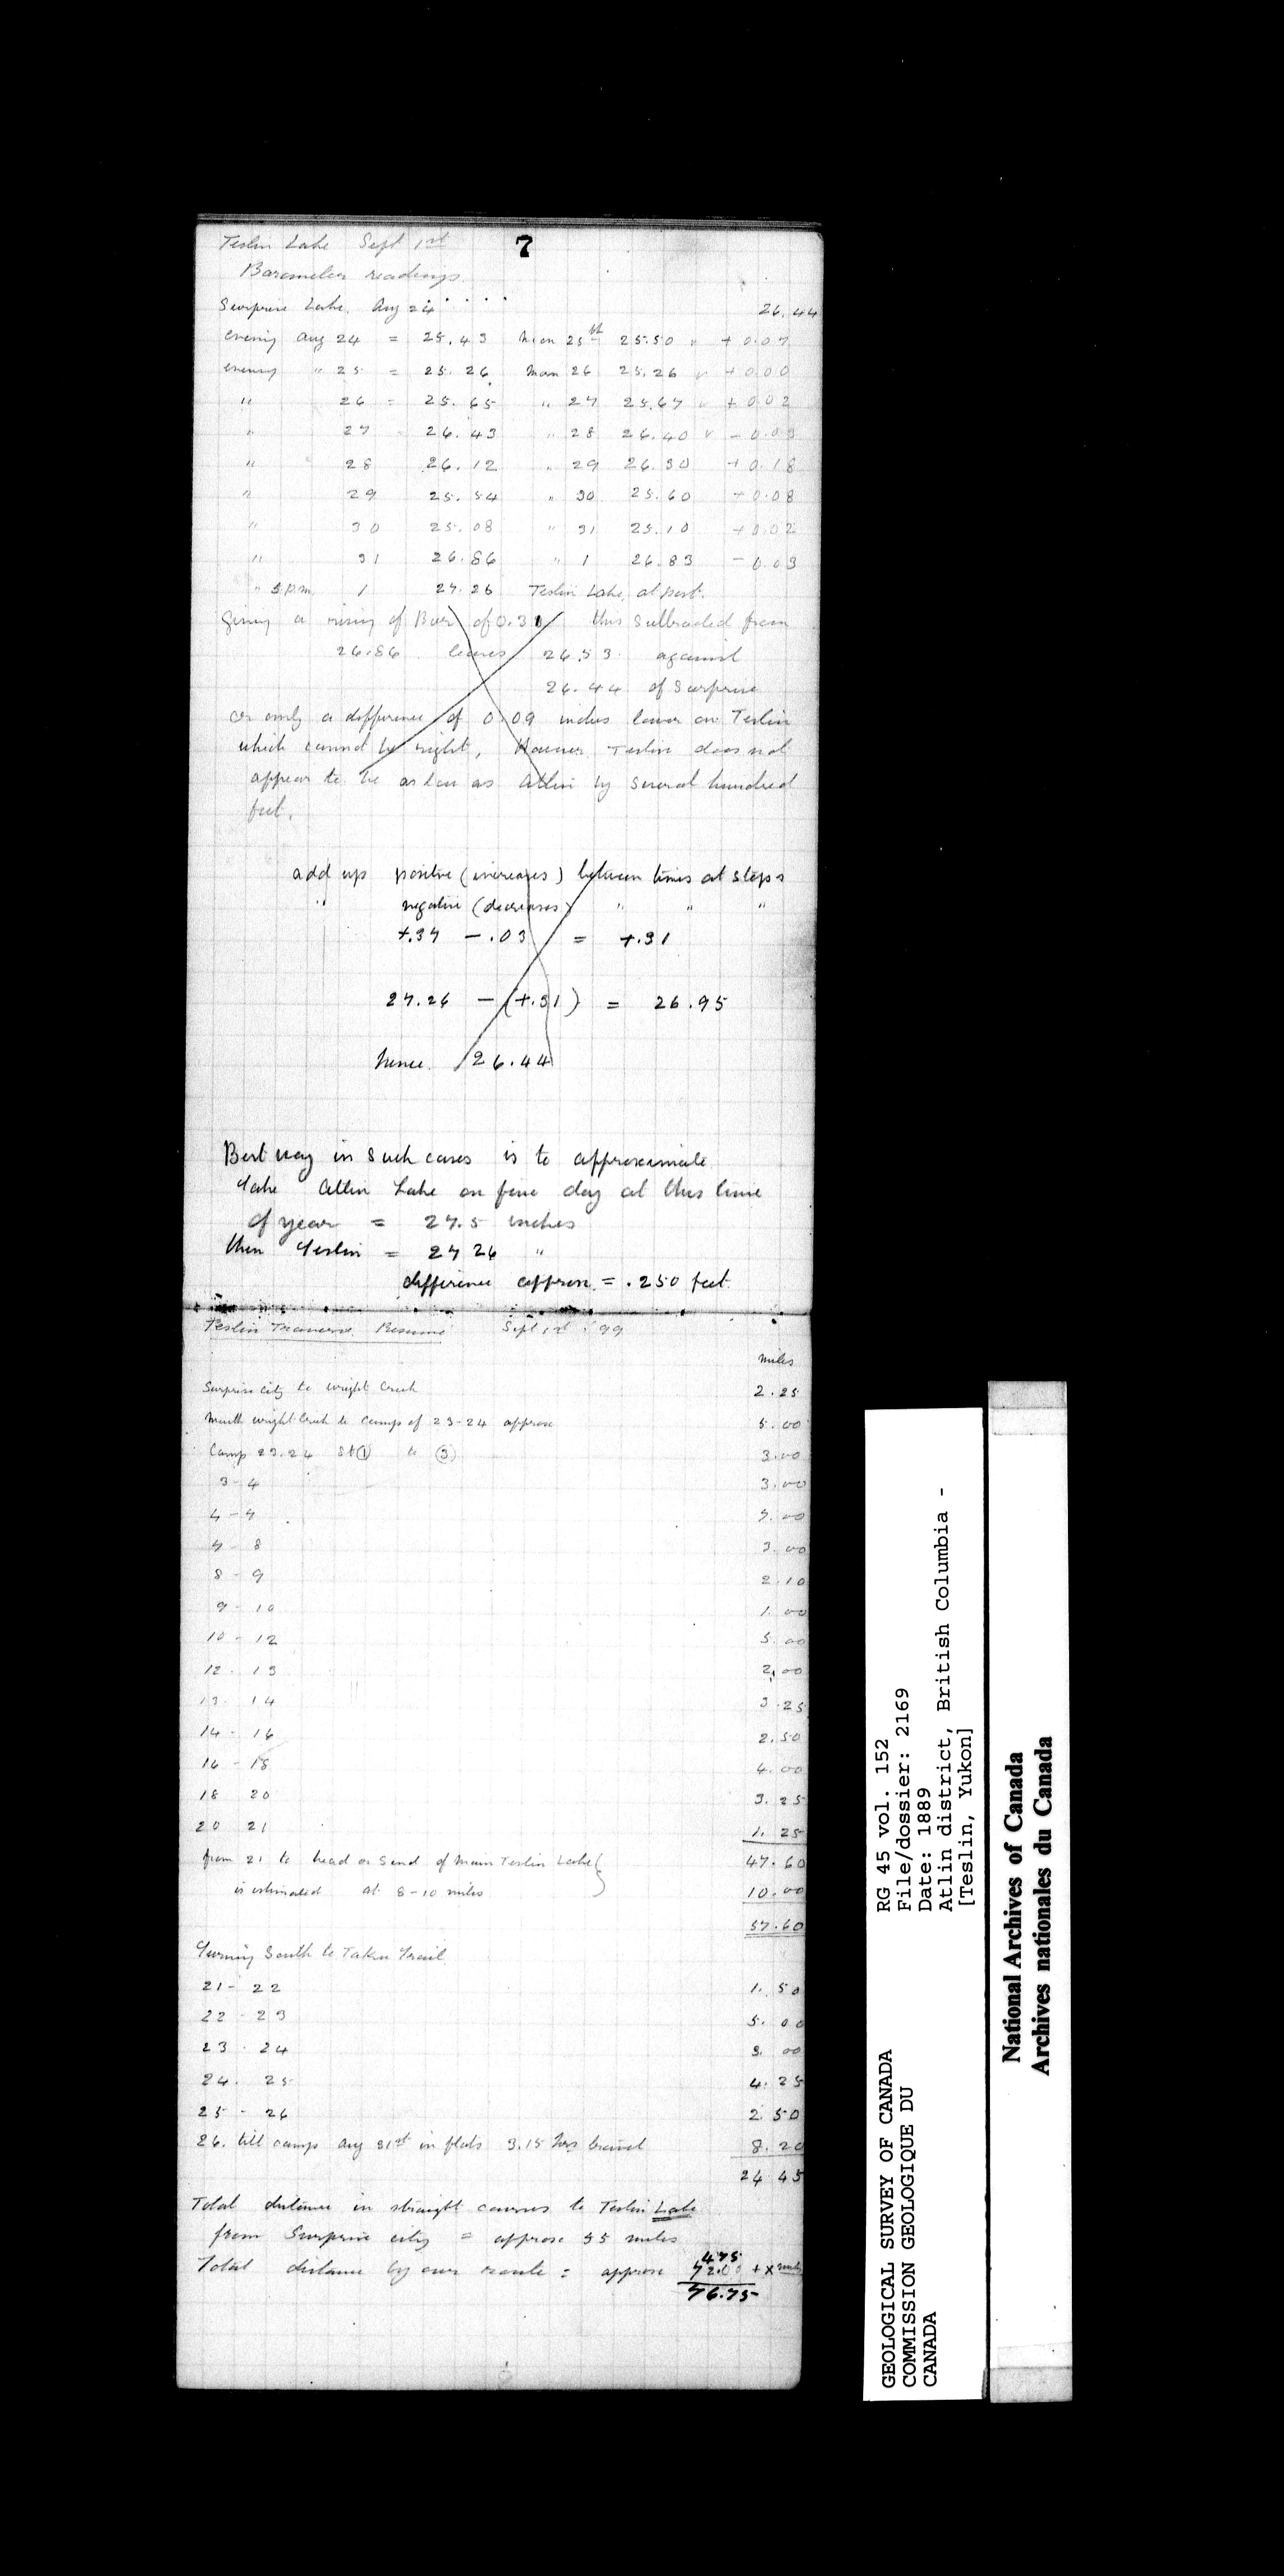 7
Teslin Lake Sept 1st
Barometer readings.
Surprise Lake. Aug 24 . . . . 26.44
evening Aug 24 = 25.43 Morn 25th 25.50 " + 0.07
evening " 25 = 25.26 Morn 26 25.26 v + 0.00
" 26 = 25.65 " 27 25.67 v + 0.02
" 27 26.43 " 28 26.40 v - 0.03
" 28 26.12 " 29 26.30 + 0.18
" 29 25.54 " 30 25.60 + 0.08
" 30 25.08 " 31 25.10 + 0.02
" 31 26.86 " 1 26.83 - 0.03
" 5 p.m. 1 27.26 Teslin Lake, at post.
Giving a rising of Bar of 0.31 this subtracted from
26.86 leaves 26.53 against
26.44 of Surprise
or only a difference of 0.09 inches lower on Teslin
which cannot be right, However Teslin does not
appear to be as low as Atlin by several hundred
feet.
add up positive (increases) between times at stops
" negative (decreases) " " "
+.37 - .03 = +.31
27.26 - (+.31) = 26.95
hence 26.44
Best way in such cases is to approximate
Take Atlin Lake on fine day at this time
of year = 27.5 inches
then Teslin = 27 26 "
difference approx. = .250 feet.
Teslin Traverse Resumé Sept 1st '99
miles
Surprise city to Wright Creek 2.25
Mouth Wright Creek to camp of 23-24 approx 5.00
Camp 23.24 St ① to ③ 3.00
3-4 3.00
4-7 7.00
7-8 3.00
8-9 2.10
9-10 1.00
10-12 5.00
12-13 2.00
13-14 3.25
14-16 2.50
16-18 4.00
18 20 3.25
20 21 1.25
from 21 to head or S end of Main Teslin Lake 47.60
is estimated at 8-10 miles 10.00
57.60
Turning South to Taku Trail
21-22 1.50
22-23 5.00
23-24 3.00
24-25 4.25
25-26 2.50
26. till camp Aug 31st in flats 3.15 hrs travel 8.20
24 45
Total distance in straight courses to Teslin Lake
from Surprise city = approx 55 miles
4.75
Total distance by our route = approx 72.00 + x miles
76.75
RG 45 vol. 152
File/dossier: 2169
Date: 1889
Atlin district, British Columbia -
[Teslin, Yukon]
GEOLOGICAL SURVEY OF CANADA
COMMISSION GEOLOGIQUE DU
CANADA
National Archives of Canada
Archives nationales du Canada